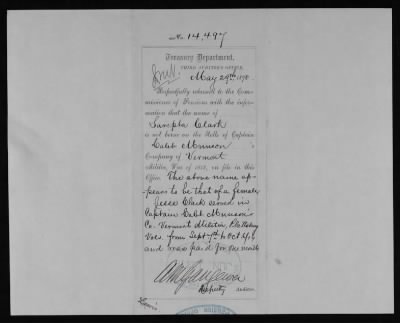 No. 14,497
Treasury Department,
THIRD AUDITOR'S OFFICE,
May 29th 1890.
Respectfully returned to the Com-
missioner of Pensions with the infor-
mation that the name of
Sarepta Clark
is not borne on the Rolls of Captain
Caleb Munson
Company of Vermont
Militia, War of 1812, on file in this
Office. The above name ap-
pears to be that of a female
Jesse Clark served in
Captain Caleb Munson's
Co. Vermont Militia, Plattsburg
Vols. from Sept 7th to Oct
and was paid for one month
Deputy Auditor.
Lewis